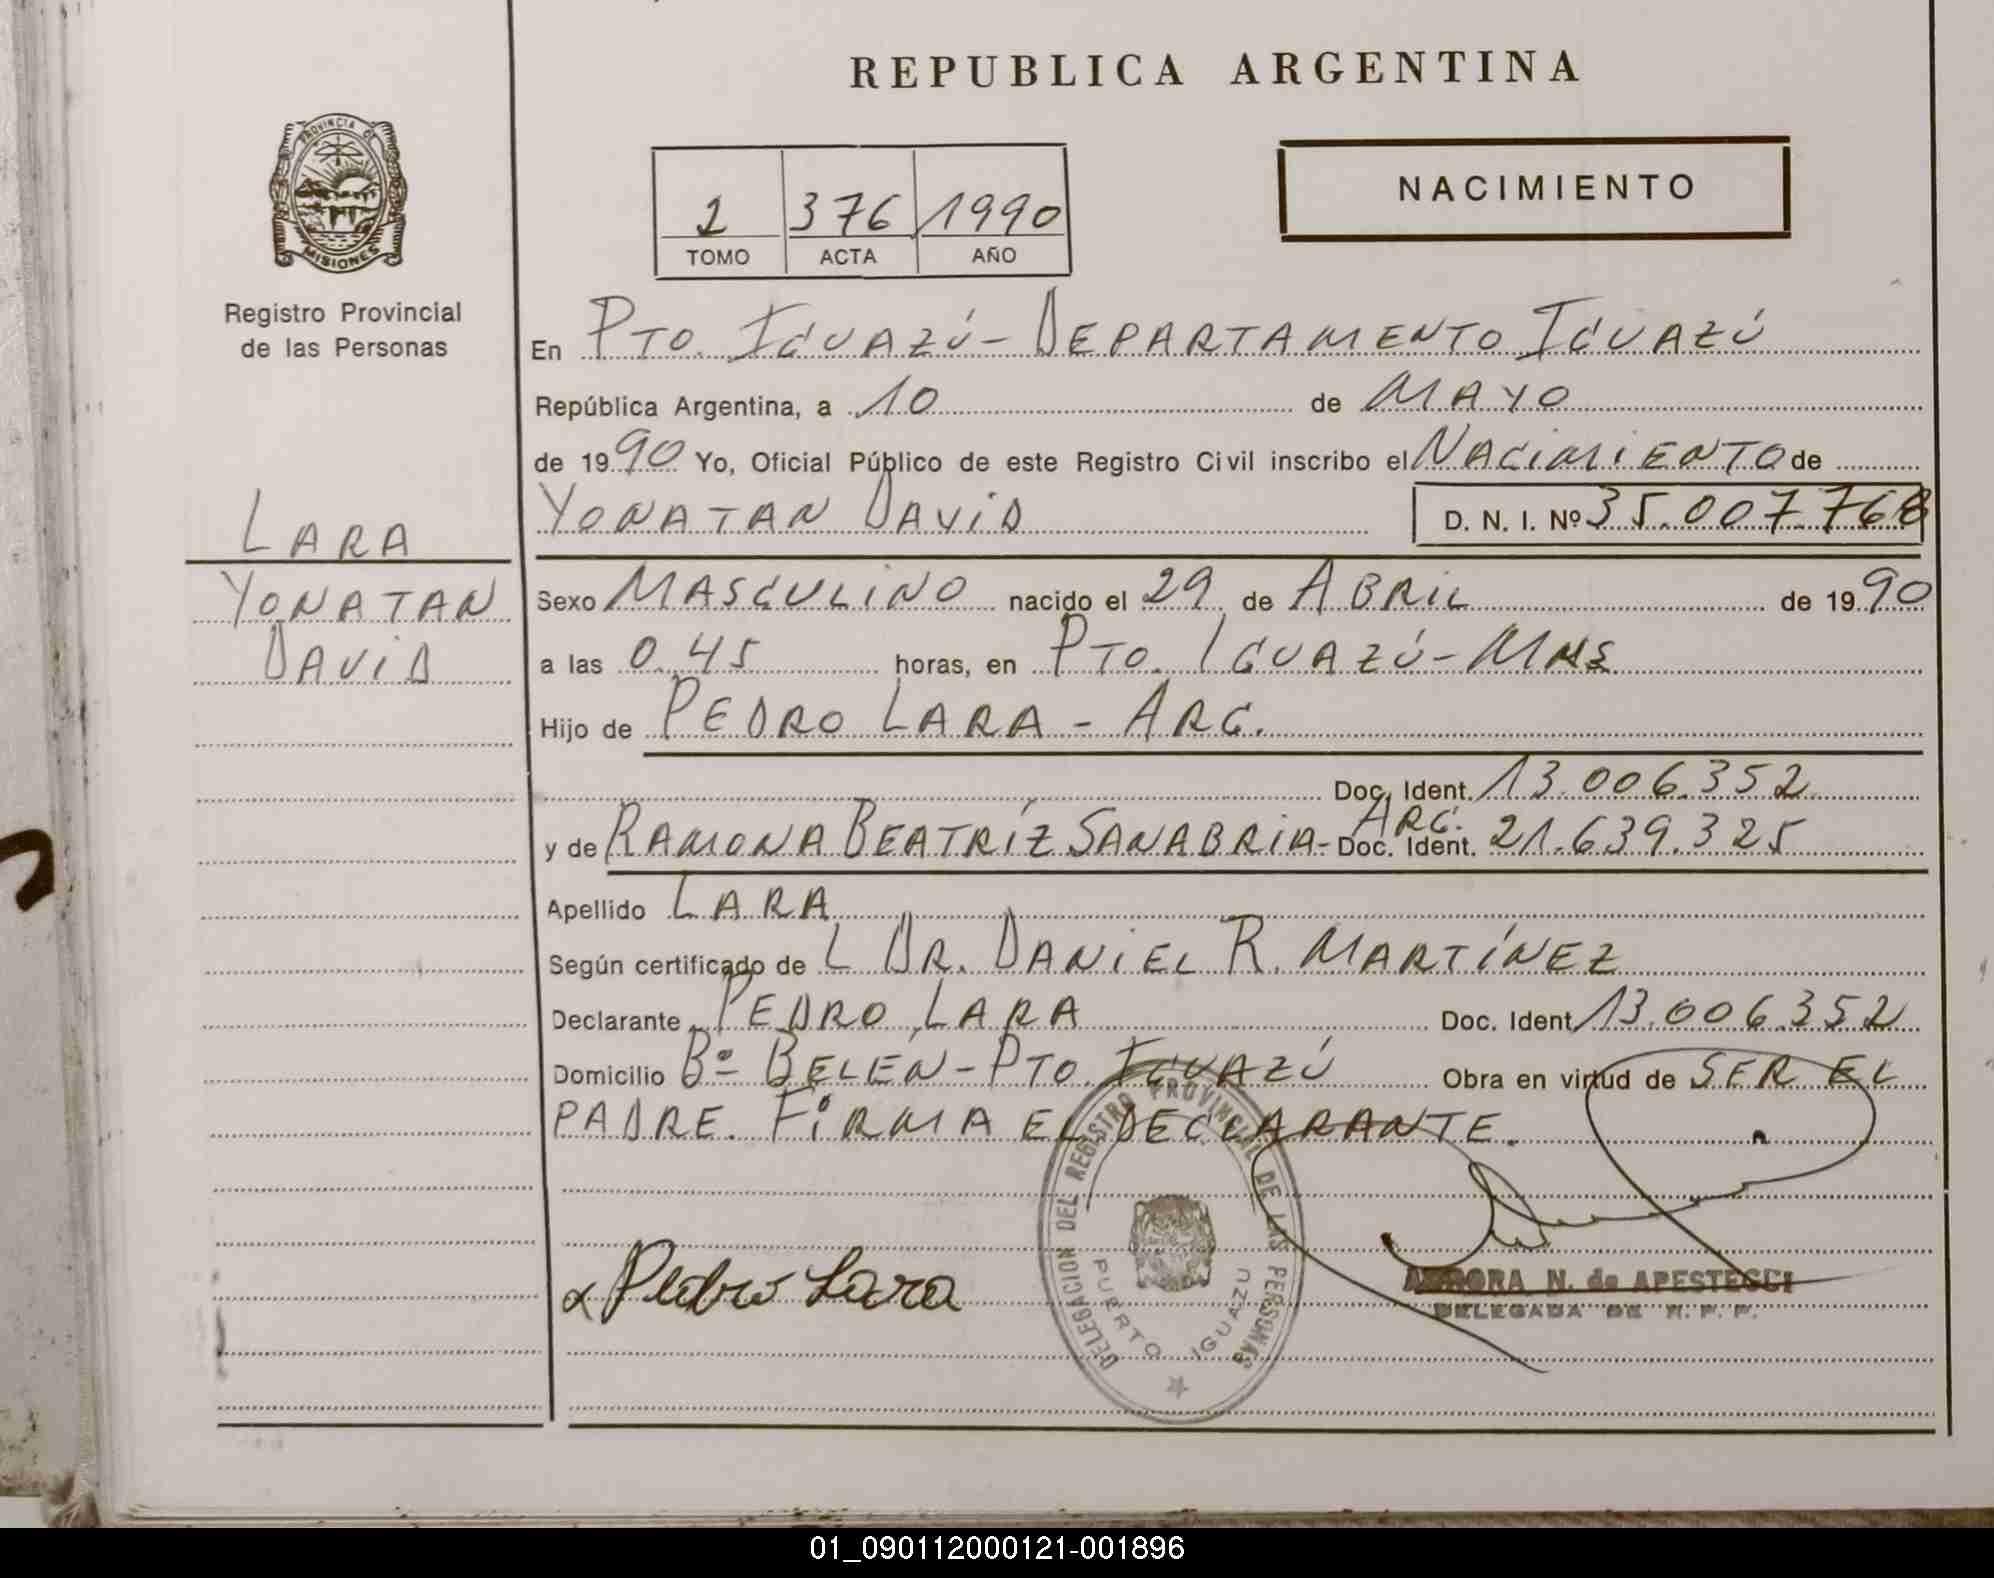 REPUBLICA ARGENTINA
PROVINCIA DE
MISIONES
Registro Provincial
de las Personas
NACIMIENTO
2 376 1990
TOMO ACTA AÑO
En PTO. IGUAZÚ - DEPARTAMENTO IGUAZÚ
República Argentina, a 10 de MAYO
de 1990 Yo, Oficial Público de este Registro Civil inscribo el NACIMIENTO de
YONATAN DAVID D. N. I. Nº 35.007.768
LARA
YONATAN
DAVID
Sexo MASCULINO nacido el 29 de ABRIL de 1990
a las 0.45 horas, en PTO. IGUAZÚ - MNS
Hijo de PEDRO LARA - ARG.
Doc. Ident. 13.006.352
y de RAMONA BEATRÍZ SANABRIA - ARG. Doc. Ident. 21.639.325
Apellido LARA
Según certificado de L DR. DANIEL R. MARTÍNEZ
Declarante PEDRO LARA Doc. Ident 13.006.352
Domicilio Bº BELÉN - PTO. IGUAZÚ Obra en virtud de SER EL
PADRE. FIRMA EL DECLARANTE.
Pedro Lara
DELEGACION DEL REGISTRO PROVINCIAL DE LAS PERSONAS
PUERTO IGUAZU
N. de APESTEGUI
DELEGADA DE R. P. P.
01_090112000121-001896